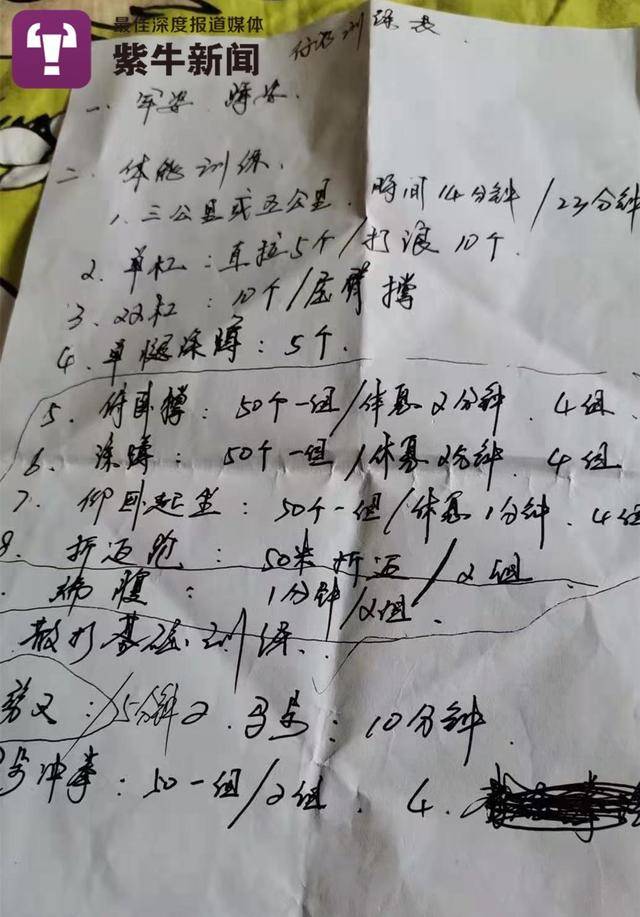 最佳深度报道媒体
紫牛新闻
训练表
一、军姿 蹲姿.
二、体能训练.
1. 三公里或五公里. 时间14分钟/23分钟
2. 单杠:直拉5个/打浪10个.
3. 双杠:10个/屈臂撑
4. 单腿深蹲:5个.
5. 俯卧撑:50个一组/休息2分钟. 4组.
6. 深蹲:50个一组/休息2分钟. 4组
7. 仰卧起坐:50个一组/休息1分钟. 4组
8. 折返跑:50米折返/2组.
腹:1分钟/2组.
散打基础训练.
:15分钟 2. 马步:10分钟.
步冲拳:50一组/2组. 4.